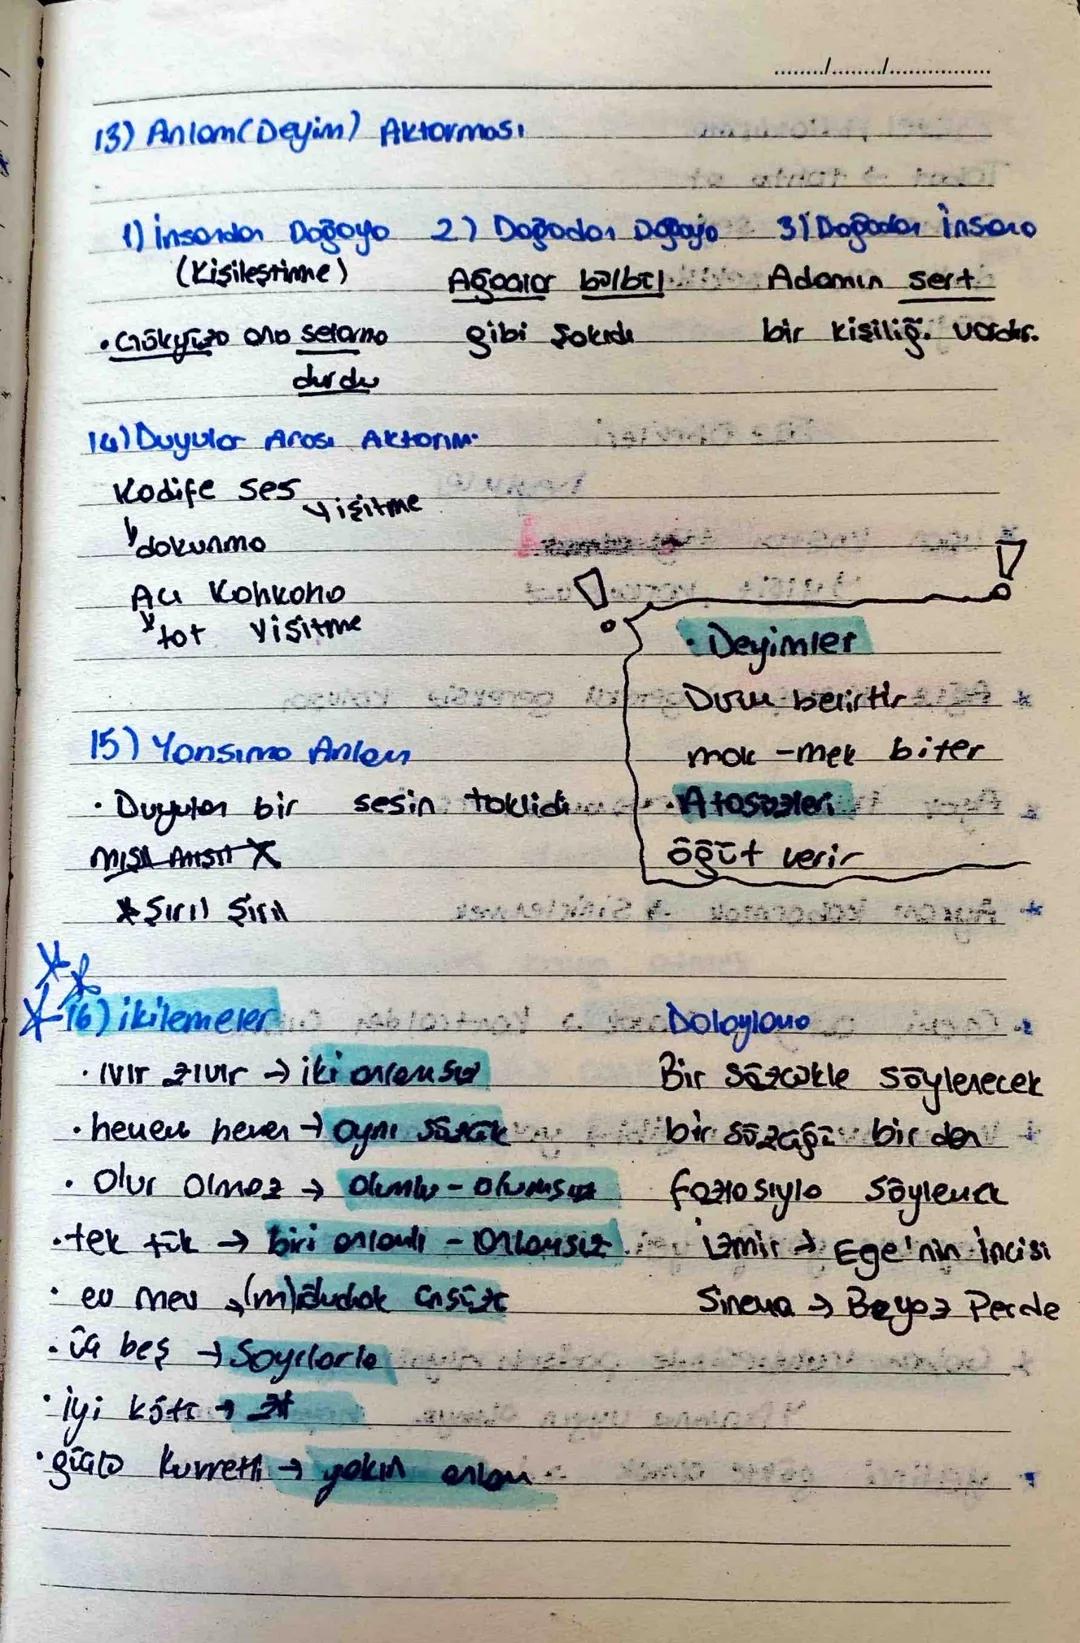 ......../......../................
13) Anlam(Deyim) Aktarması
1) İnsandan Doğaya
(Kişileştirme)
• Gökyüzü ona selama
durdu
2) Doğadan Doğaya
Ağaçlar bülbül
gibi şakıdı
3) Doğadan İnsana
Adamın sert
bir kişiliği vardır.
14) Duyular Arası Aktarım
Kadife ses
işitme
dokunma
Acı Kahkaha
tat işitme
15) Yansıma Anlam
• Duyulan bir sesin taklidi
mışıl mışıl X
* Şırıl Şırıl
! !
• Deyimler
Durum belirtir
mak -mek biter
• Atasözleri
öğüt verir
16) ikilemeler
• ıvır zıvır → iki anlamsız
• hemen hemen → aynı sözcük
• Olur Olmaz → olumlu - olumsuz
• tek tük → biri anlamlı - anlamsız
• ev mev → (m) dudak ünsüzü
• üç beş → Sayılarla
• iyi kötü → zıt
• güçlü kuvvetli → yakın anlam
Dolaylama
Bir sözcükle söylenecek
bir sözcüğü birden
fazlasıyla söylemek
İzmir → Ege'nin İncisi
Sinema → Beyaz Perde